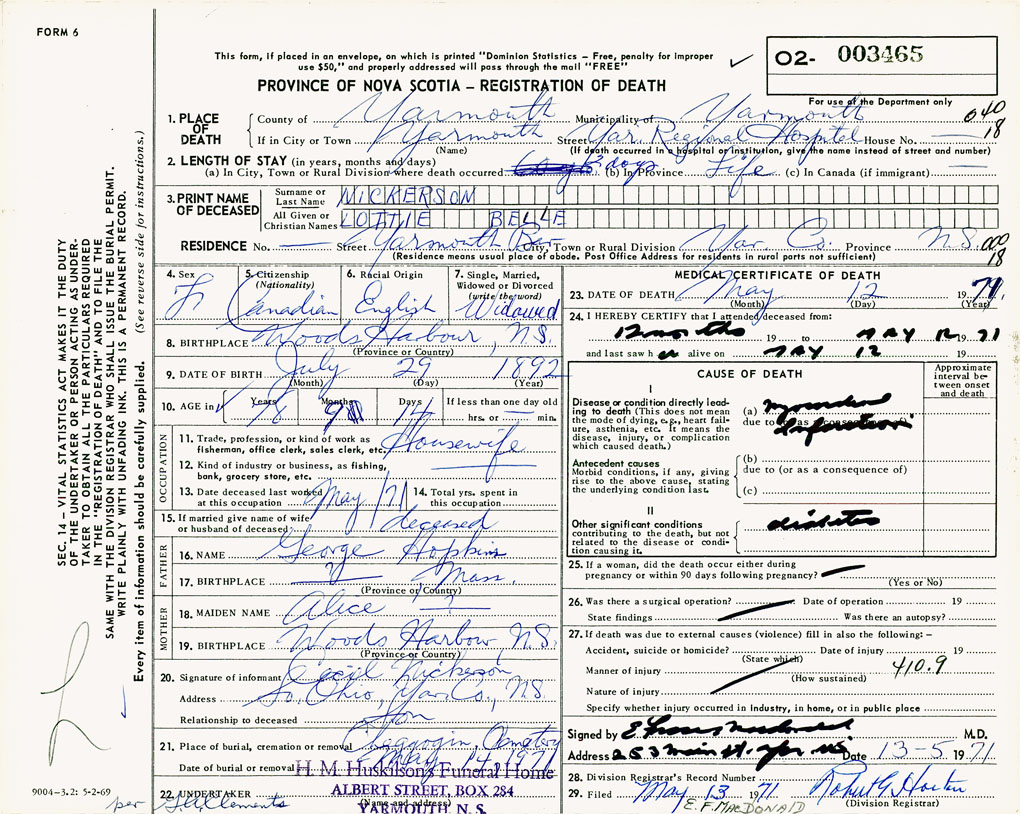 FORM 6
This form, if placed in an envelope, on which is printed "Dominion Statistics – Free, penalty for improper
use $50," and properly addressed will pass through the mail "FREE"
02- 003465
PROVINCE OF NOVA SCOTIA – REGISTRATION OF DEATH
For use of the Department only
1. PLACE OF DEATH
County of Yarmouth Municipality of Yarmouth 040
If in City or Town Yarmouth Street Yar. Regional Hospital House No. — 18
(Name) (If death occurred in a hospital or institution, give the name instead of street and number)
2. LENGTH OF STAY (in years, months and days)
(a) In City, Town or Rural Division where death occurred 3 days (b) In Province Life (c) In Canada (if immigrant) —
3. PRINT NAME OF DECEASED
Surname or Last Name NICKERSON
All Given or Christian Names LOTTIE BELLE
RESIDENCE No. — Street Yarmouth Bar City, Town or Rural Division Yar. Co. Province N.S. 000
(Residence means usual place of abode. Post Office Address for residents in rural parts not sufficient) 18
4. Sex F
5. Citizenship (Nationality) Canadian
6. Racial Origin English
7. Single, Married, Widowed or Divorced (write the word) Widowed
8. BIRTHPLACE Woods Harbour, N.S.
(Province or Country)
9. DATE OF BIRTH July 29 1892
(Month) (Day) (Year)
10. AGE in Years 78 Months 9 Days 14 If less than one day old
hrs. or — min.
OCCUPATION
11. Trade, profession, or kind of work as fisherman, office clerk, sales clerk, etc. Housewife
12. Kind of industry or business, as fishing, bank, grocery store, etc. —
13. Date deceased last worked at this occupation May /71
14. Total yrs. spent in this occupation
15. If married give name of wife or husband of deceased deceased
FATHER
16. NAME George Hopkins
17. BIRTHPLACE ? Mass.
(Province or Country)
MOTHER
18. MAIDEN NAME Alice ?
19. BIRTHPLACE Woods Harbour, N.S.
(Province or Country)
20. Signature of informant Cecil Nickerson
Address So. Ohio, Yar. Co., N.S.
Relationship to deceased Son
21. Place of burial, cremation or removal Chegoggin Cemetery
Date of burial or removal May 14, 1971
22. UNDERTAKER
H. M. Huskilson's Funeral Home
ALBERT STREET, BOX 284
(Name and address)
YARMOUTH, N.S.
per
9004–3.2: 5-2-69
MEDICAL CERTIFICATE OF DEATH
23. DATE OF DEATH May 12 1971
(Month) (Day) (Year)
24. I HEREBY CERTIFY that I attended deceased from:
12 months 19 to MAY 12 1971
and last saw h er alive on MAY 12 19
CAUSE OF DEATH
Approximate interval between onset and death
I
Disease or condition directly leading to death (This does not mean the mode of dying, e.g., heart failure, asthenia, etc. It means the disease, injury, or complication which caused death.)
(a) myocardial
due to (or as a consequence of)
infarction
Antecedent causes
Morbid conditions, if any, giving rise to the above cause, stating the underlying condition last.
(b)
due to (or as a consequence of)
(c)
II
Other significant conditions contributing to the death, but not related to the disease or condition causing it.
diabetes
25. If a woman, did the death occur either during pregnancy or within 90 days following pregnancy? —
(Yes or No)
26. Was there a surgical operation? Date of operation 19
State findings Was there an autopsy?
27. If death was due to external causes (violence) fill in also the following: –
Accident, suicide or homicide? Date of injury 19
(State which)
Manner of injury 410.9
(How sustained)
Nature of injury
Specify whether injury occurred in industry, in home, or in public place
Signed by M.D.
Address 253 main st. Yar NS Date 13-5 1971
28. Division Registrar's Record Number
29. Filed May 13 1971 Robert G. Horton
(Division Registrar)
E.F. MACDONALD
SEC. 14 – VITAL STATISTICS ACT MAKES IT THE DUTY
OF THE UNDERTAKER OR PERSON ACTING AS UNDER-
TAKER TO OBTAIN ALL THE PARTICULARS REQUIRED
IN THE "REGISTRATION OF DEATH" AND TO FILE THE
SAME WITH THE DIVISION REGISTRAR WHO SHALL ISSUE THE BURIAL PERMIT.
WRITE PLAINLY WITH UNFADING INK. THIS IS A PERMANENT RECORD.
Every item of information should be carefully supplied. (See reverse side for instructions.)